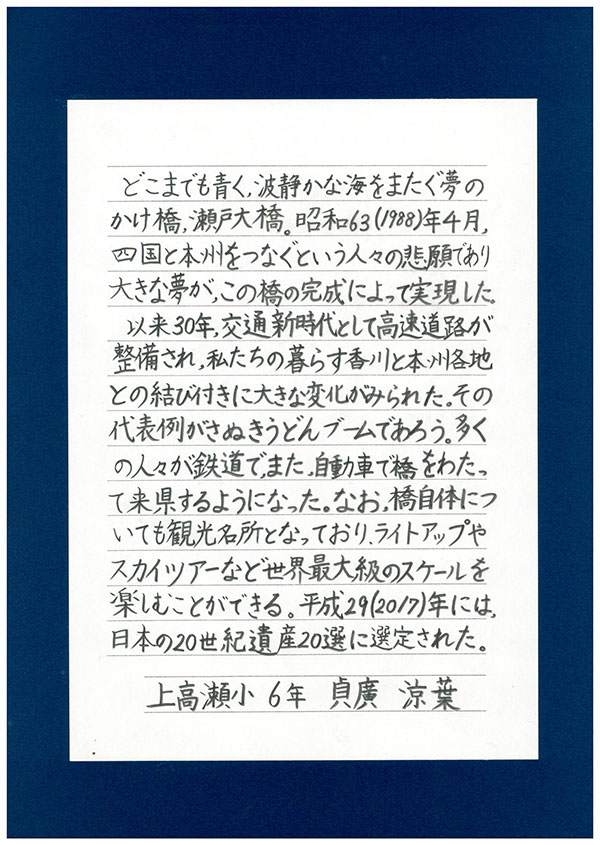 どこまでも青く,波静かな海をまたぐ夢の
かけ橋,瀬戸大橋。昭和63(1988)年4月,
四国と本州をつなぐという人々の悲願であり
大きな夢が,この橋の完成によって実現した。
以来30年,交通新時代として高速道路が
整備され,私たちの暮らす香川と本州各地
との結び付きに大きな変化がみられた。その
代表例がさぬきうどんブームであろう。多く
の人々が鉄道で,また,自動車で橋をわたっ
て来県するようになった。なお,橋自体につ
いても観光名所となっており,ライトアップや
スカイツアーなど世界最大級のスケールを
楽しむことができる。平成29(2017)年には,
日本の20世紀遺産20選に選定された。
上高瀬小 6年 貞廣 涼葉